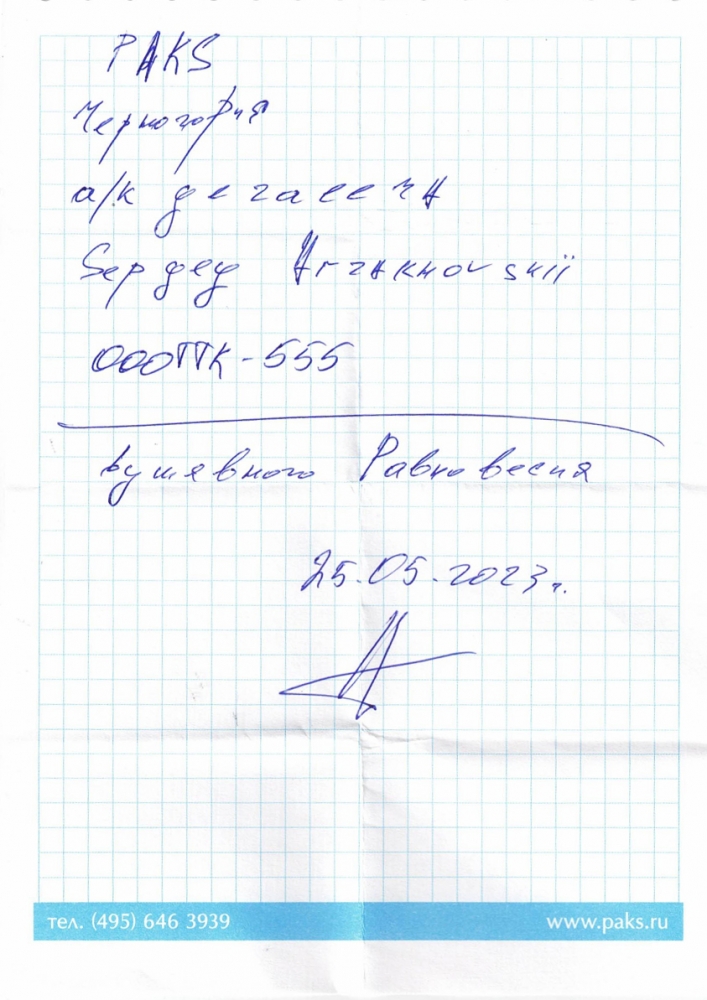 PAKS
Черногория
а/к дегассNA
Sергей Arzakhovskii
ОООТТК-555
Душевного Равновесия
25.05.2023г.
тел. (495) 646 3939 www.paks.ru